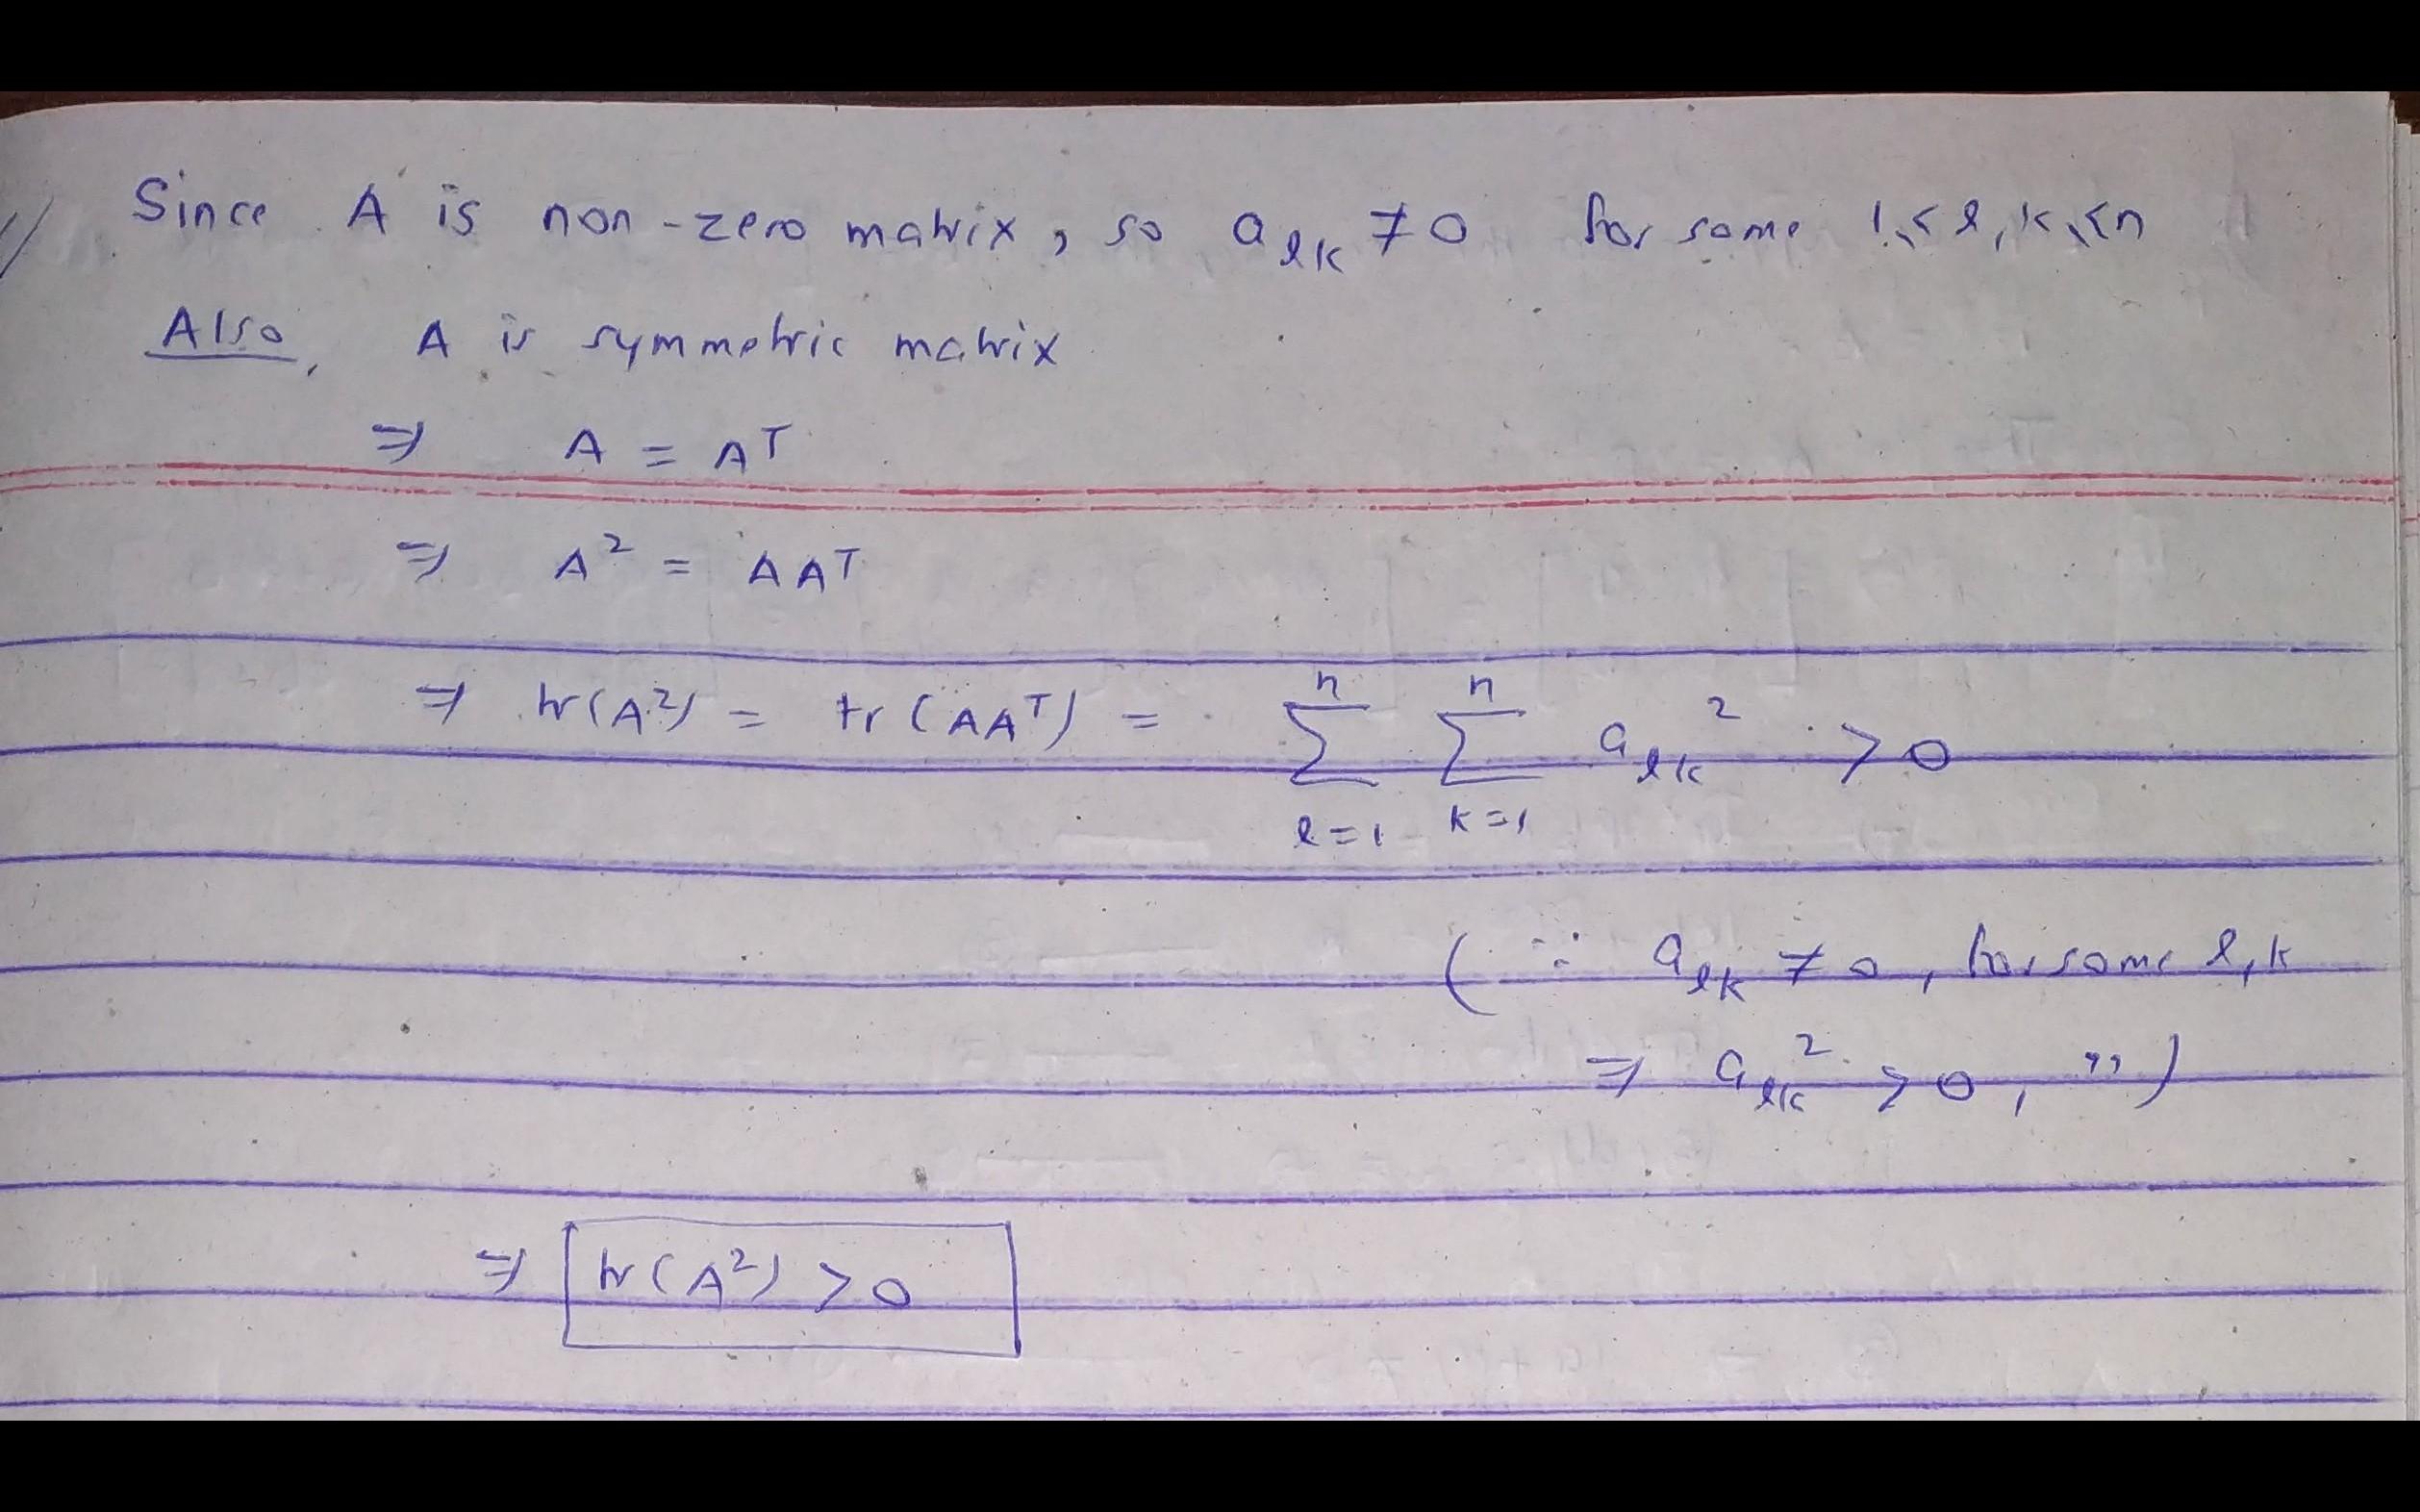 1) Since A is non-zero matrix, so a_{lk} ≠ 0 for some 1 ≤ l, k ≤ n
Also, A is symmetric matrix
⇒ A = A^T
⇒ A^2 = A A^T
⇒ tr(A^2) = tr(AA^T) = \sum_{l=1}^{n} \sum_{k=1}^{n} a_{lk}^2 > 0
(∵ a_{lk} ≠ 0, for some l, k
⇒ a_{lk}^2 > 0, ")
⇒ tr(A^2) > 0